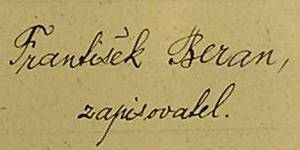 František Beran,
zapisovatel.